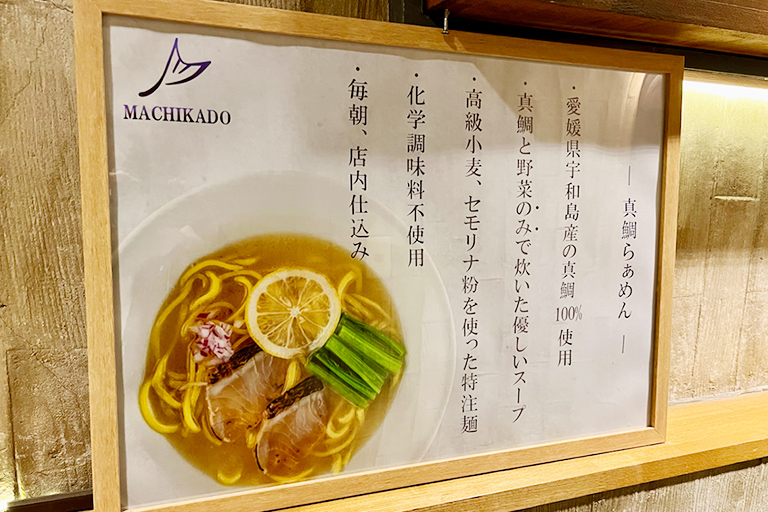 MACHIKADO
― 真鯛らぁめん ―
・愛媛県宇和島産の真鯛100%使用
・真鯛と野菜のみで炊いた優しいスープ
・高級小麦、セモリナ粉を使った特注麺
・化学調味料不使用
・毎朝、店内仕込み